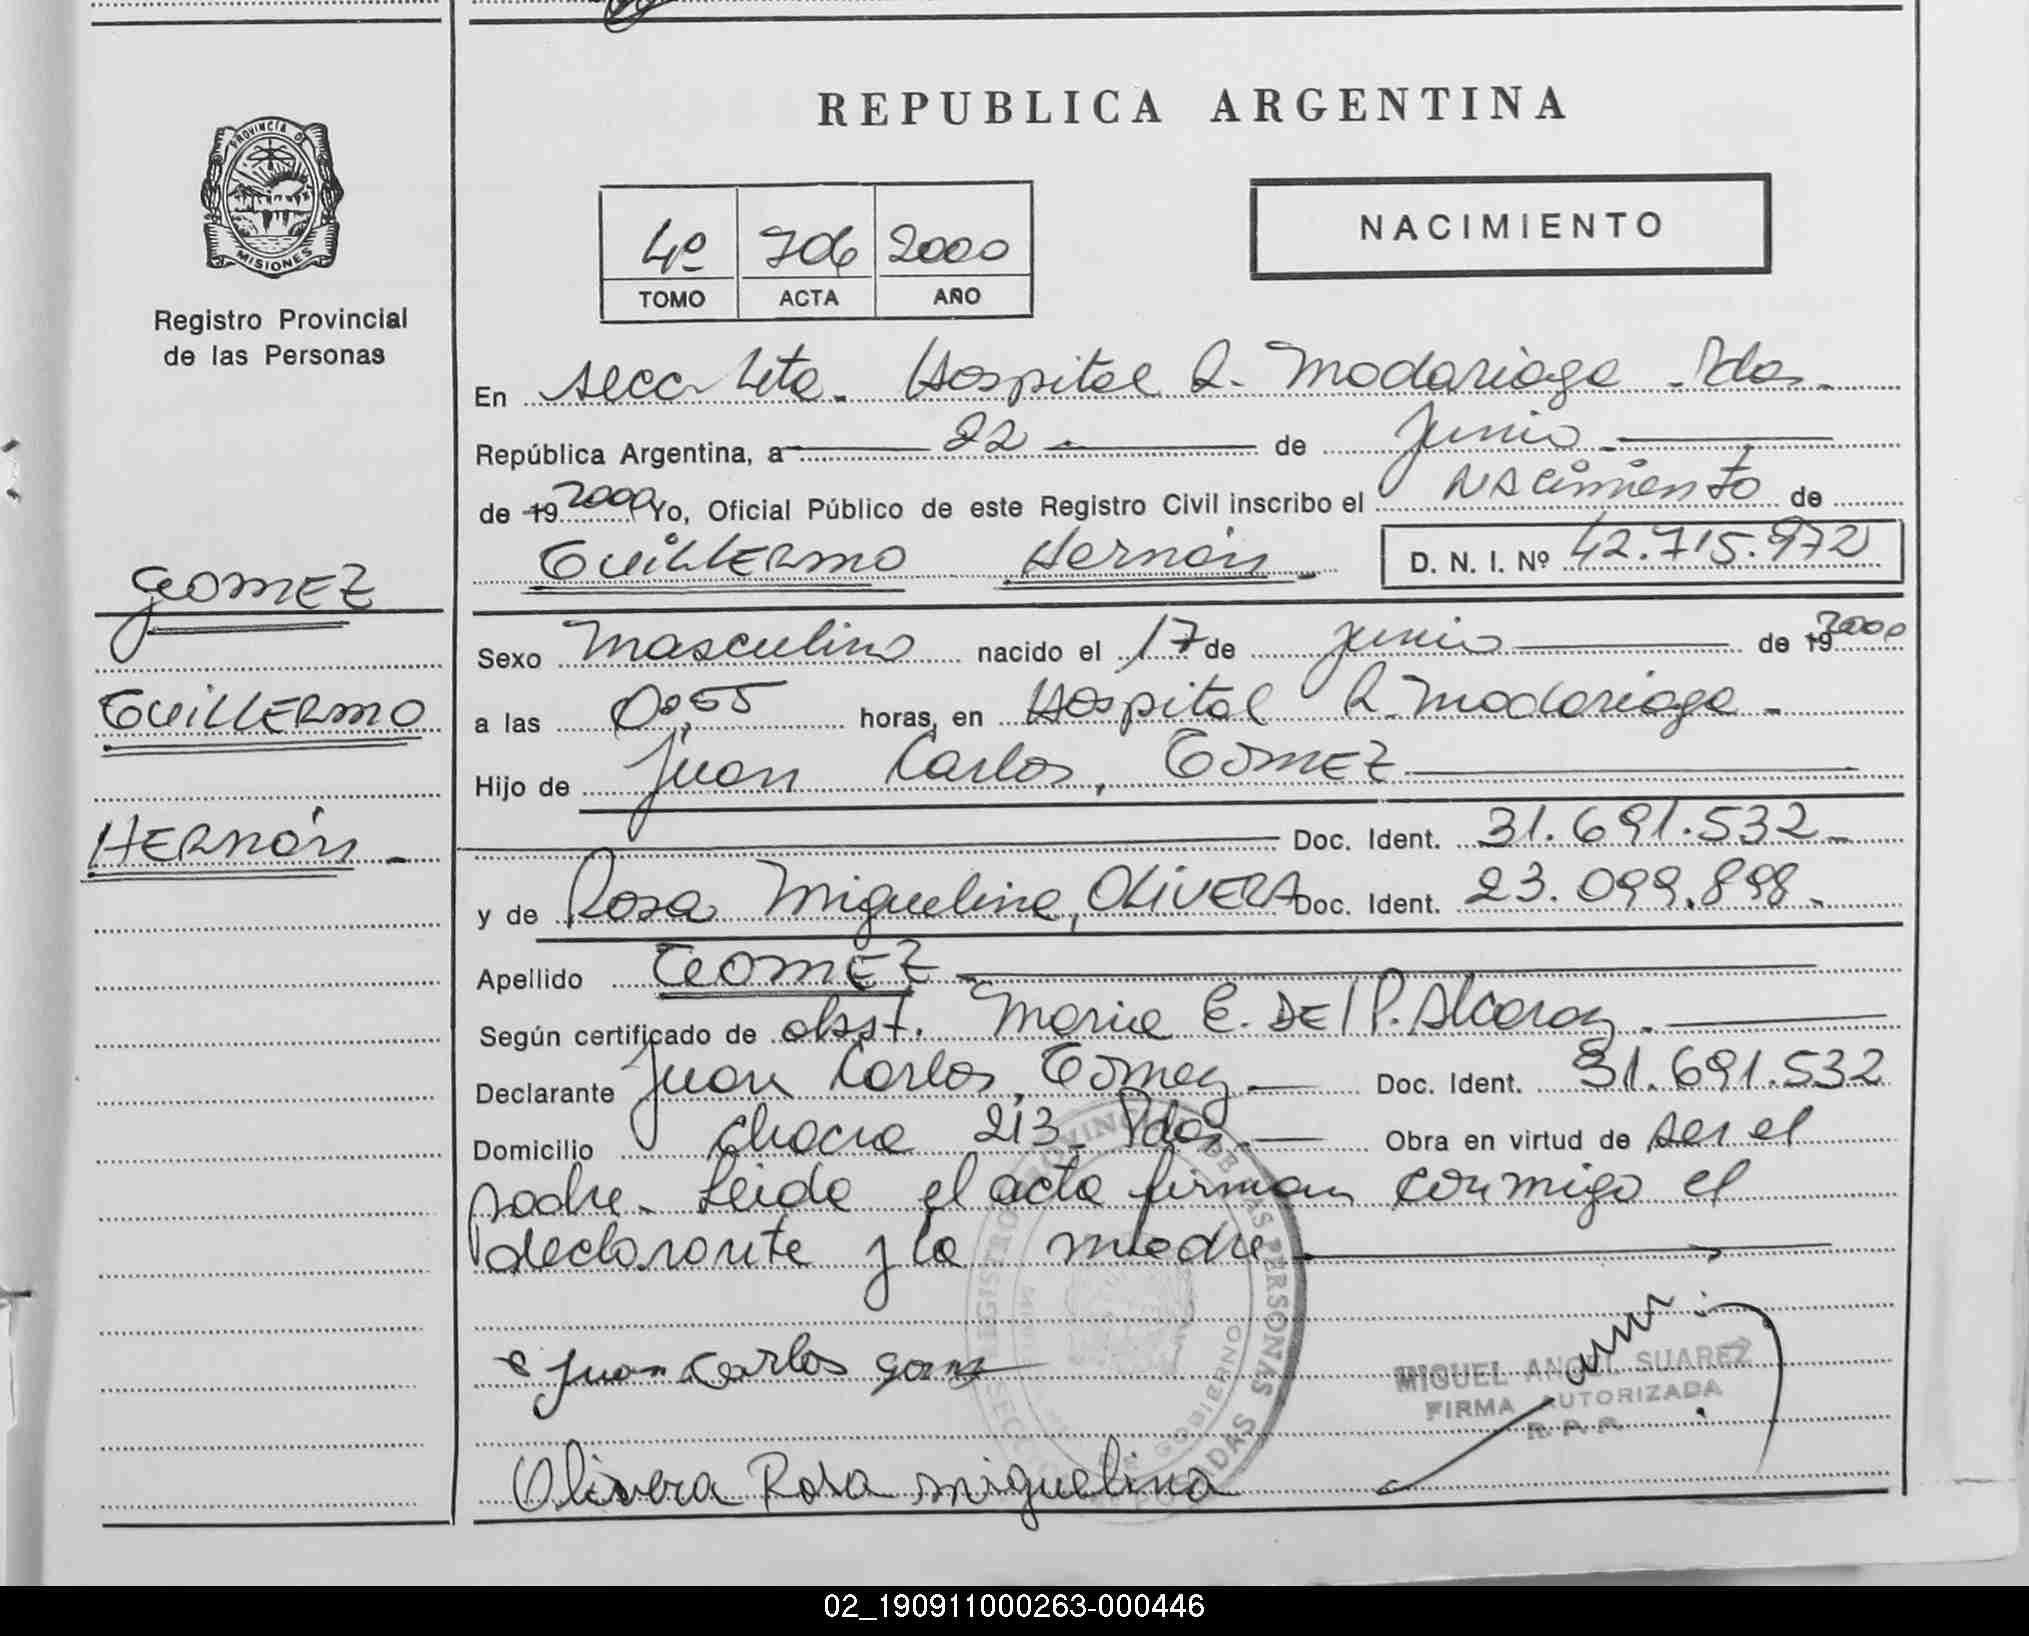 REPUBLICA ARGENTINA
PROVINCIA DE
MISIONES
Registro Provincial
de las Personas
4º 706 2000
TOMO ACTA AÑO
NACIMIENTO
En Secc 4ta. Hospital R. Madariaga - Pdas.
República Argentina, a 22 de Junio
de 19 2000 Yo, Oficial Público de este Registro Civil inscribo el NACimiento de
GUiLLERmo Hernán D. N. I. Nº 42.715.972
GOMEZ
GUiLLERmO
HERNán
Sexo Masculino nacido el 17 de junio de 19 2000
a las 0:55 horas, en Hospital R. Madariaga -
Hijo de Juan Carlos, GOMEZ
Doc. Ident. 31.691.532
y de Rosa Miguelina, OLiVERA Doc. Ident. 23.099.898
Apellido GOMEZ
Según certificado de obst. Maria E. DEl P. Alcaraz
Declarante Juan Carlos, Gómez Doc. Ident. 31.691.532
Domicilio chacra 213 - Pdas. Obra en virtud de ser el
padre. Leida el acta firman conmigo el
declarante y la madre
REGISTRO PROVINCIAL DE LAS PERSONAS
GOBIERNO
POSADAS
Juan Carlos
MIGUEL ANGEL SUAREZ
FIRMA AUTORIZADA
R.P.P.
Olivera Rosa miguelina
02_190911000263-000446